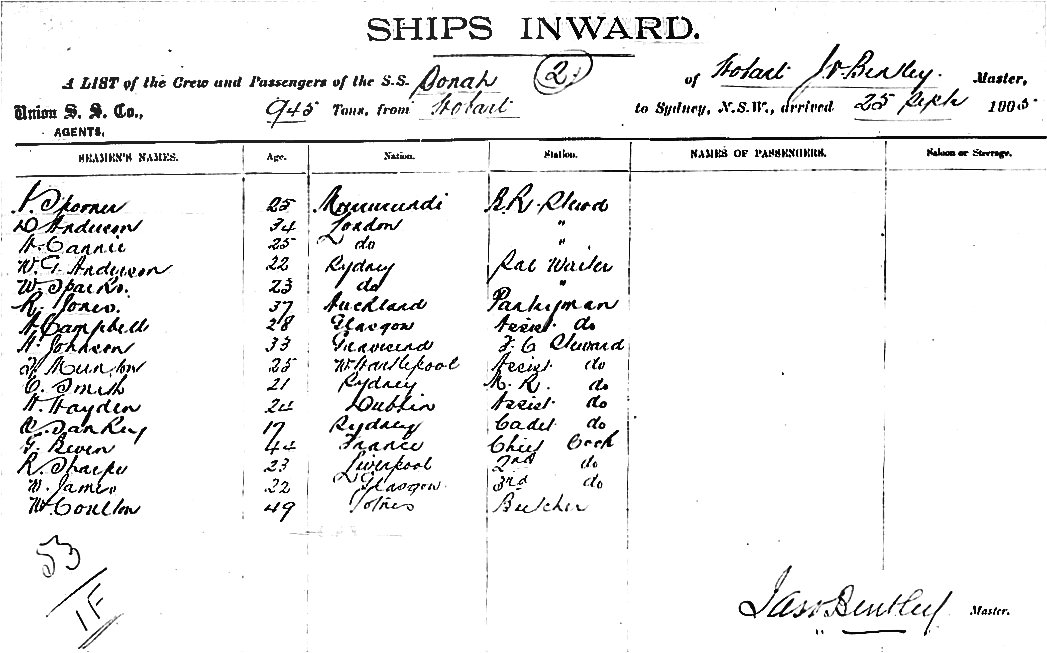 SHIPS INWARD.
A LIST of the Crew and Passengers of the S.S. Oonah (2) of Hobart J. Bentley. Master,
Union S. S. Co., 945 Tons, from Hobart to Sydney, N.S.W., arrived 25 Sept 1905
AGENTS,
SEAMEN'S NAMES. Age. Nation. Station. NAMES OF PASSENGERS. Saloon or Steerage.
Spooner 25 B.R. Stewd
D Anderson 34 London "
A. Cannie 25 do "
W. G. Anderson 22 Sydney Sal Waiter
W. Sparks. 23 do "
R. Jones. 37 Auckland Pantryman
A Campbell 28 Glasgow Assist do
A. Johnson 33 Gravesend F. C Steward
Munton 25 W Hartlepool Assist do
C. Smith 21 Sydney M. R. do
H. Hayden 24 Dublin Assist do
Sankey 17 Sydney Cadet do
Beven 44 France Chief Cook
R. Sharpe 23 Liverpool 2nd do
W. James 22 Glasgow 3rd do
W. Coulton 49 Totnes Butcher
53
1F
Jas Bentley Master.